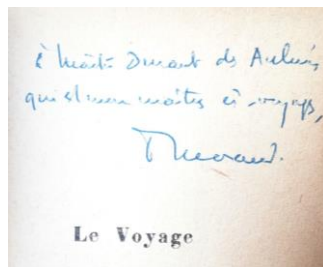 à Maître Durant des Aulnois
qui est mon maître ès-voyages,
Morand.
Le Voyage